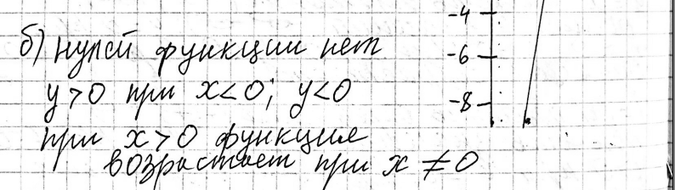 б) нулей функции нет
y>0 при x<0; y<0
при x>0 функция
возрастает при x ≠0
-4
-6
-8